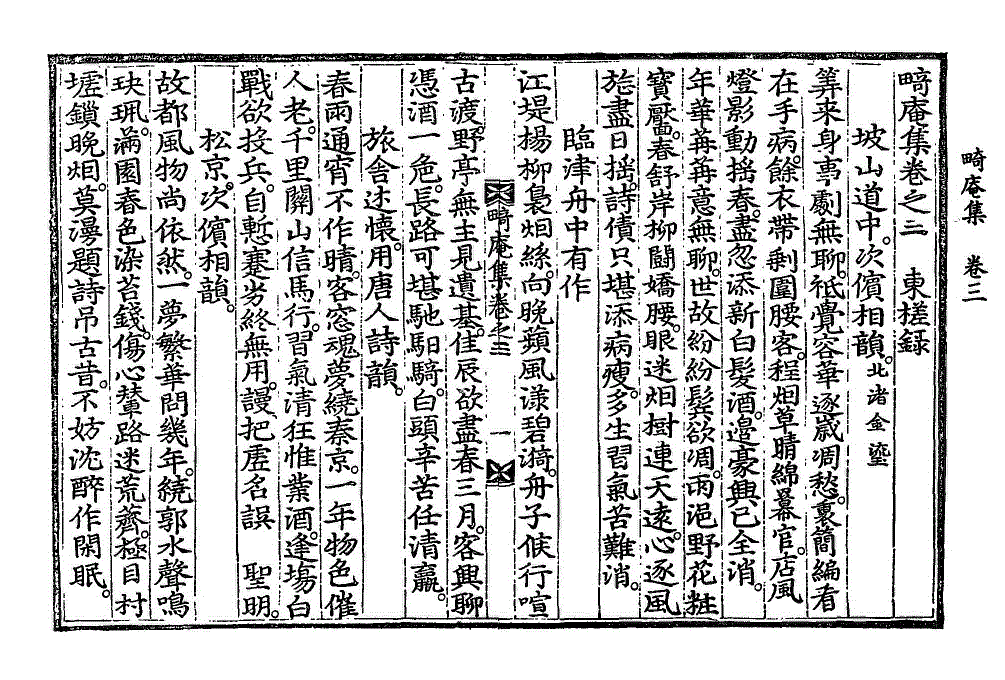 畸庵集 卷三
畸庵集卷之三 東槎録
坡山道中。次儐相韻。北渚金瑬
筭来身事劇無聊。祗覺容華逐歲凋。愁裏簡編看
在手。病餘衣帶剩圍腰。客程烟草晴綿幕。官店風
燈影動搖。春盡忽添新白髮。酒邉豪興已全消。
年華苒苒意無聊。世故紛紛鬂欲凋。雨浥野花粧
寶靨。春舒岸柳鬪嬌腰。眼迷烟樹連天遠。心逐風
旌盡日搖。詩債只堪添病瘦。多生習氣苦難消。
臨津舟中有作
江堤楊柳裊烟絲。向晚蘋風漾碧漪。舟子候行喧
畸庵集卷之三 一
古渡。野亭無主見遺基。佳辰欲盡春三月。客興聊
憑酒一卮。長路可堪馳馹騎。白頭辛苦任清羸。
旅舍述懷。用唐人詩韻。
春雨通宵不作晴。客窓魂夢繞秦京。一年物色催
人老。千里關山信馬行。習氣清狂惟業酒。逢塲白
戰欲投兵。自慙蹇劣終無用。謾把虗名誤 聖明。
松京。次儐相韻。
故都風物尚依然。一夢繁華問幾年。繞郭水聲鳴
玦珮。滿園春色染苔錢。傷心輦路迷荒薺。極目村
墟鎖晚烟。莫漫題詩吊古昔。不妨沈醉作閑眠。